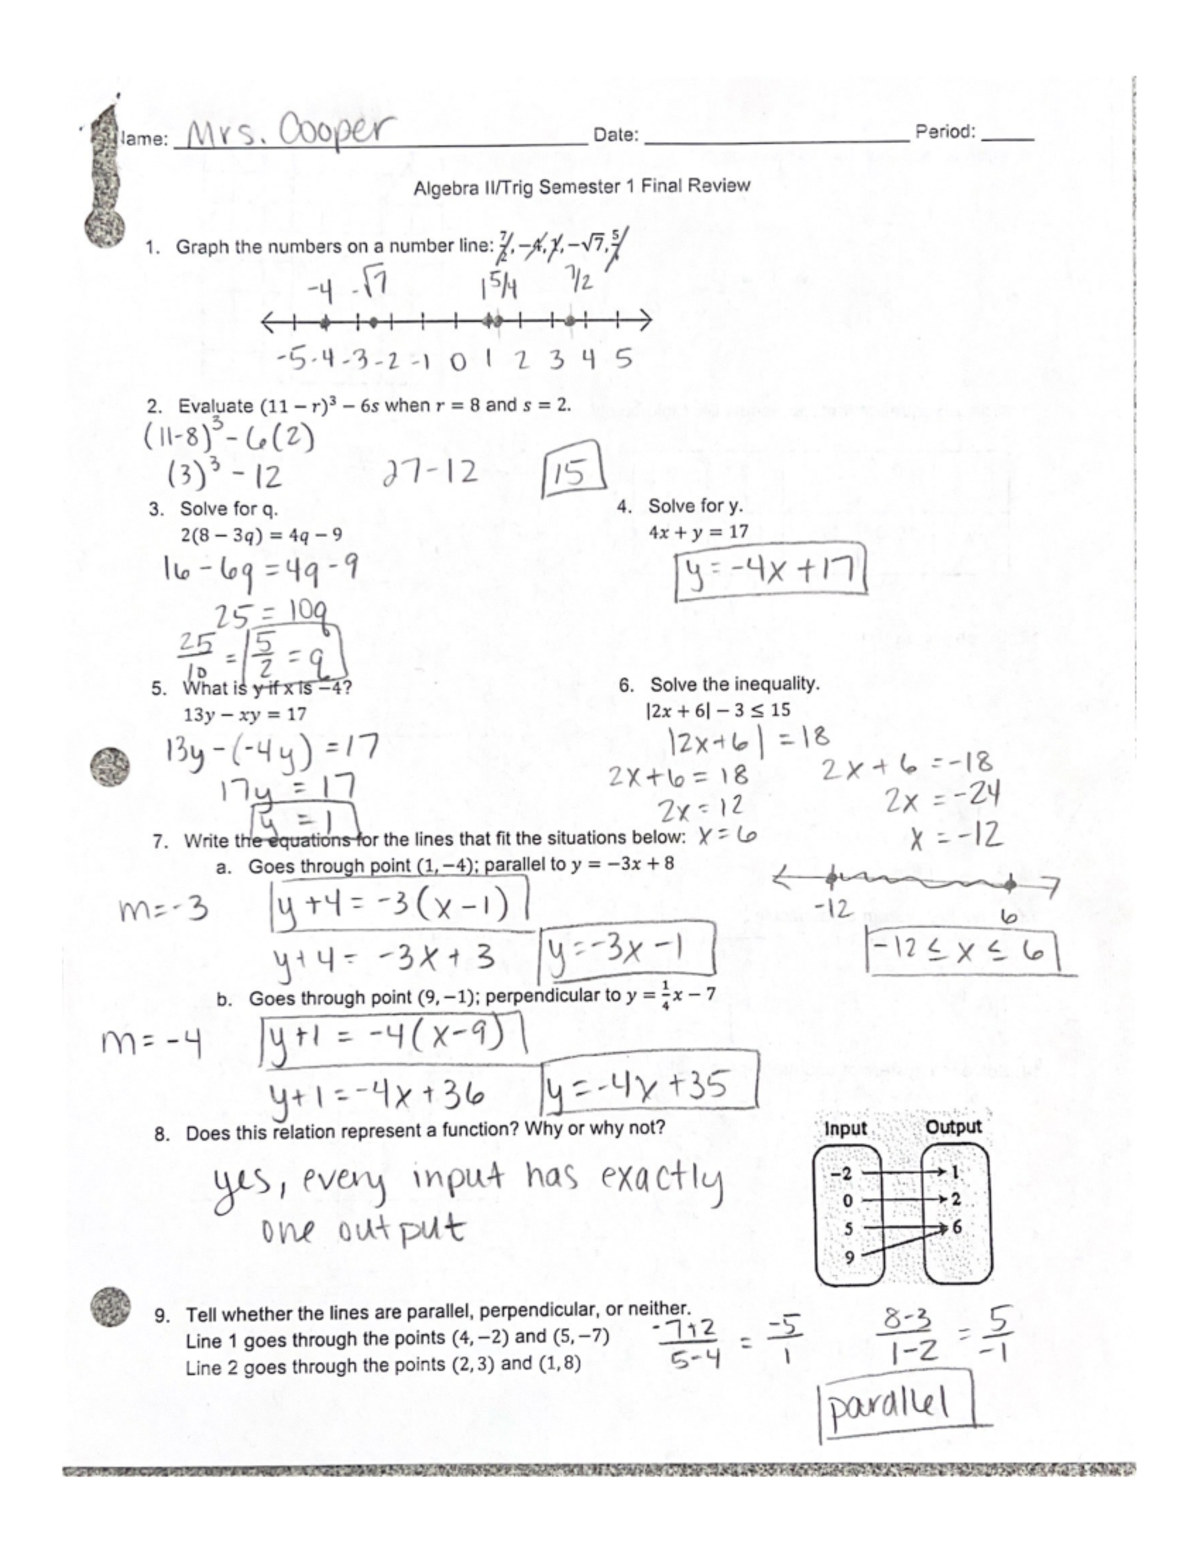 Name: Mrs. Cooper Date: Period:
Algebra II/Trig Semester 1 Final Review
1. Graph the numbers on a number line: 7/2, −4, 1, −√7, 5/4
-4 -√7 1 5/4 7/2
-5 -4 -3 -2 -1 0 1 2 3 4 5
2. Evaluate (11 − r)³ − 6s when r = 8 and s = 2.
(11-8)³ - 6(2)
(3)³ - 12 27-12 15
3. Solve for q.
2(8 − 3q) = 4q − 9
16 - 6q = 4q - 9
25 = 10q
25/10 = 5/2 = q
4. Solve for y.
4x + y = 17
y = -4x + 17
5. What is y if x is −4?
13y − xy = 17
13y - (-4y) = 17
17y = 17
y = 1
6. Solve the inequality.
|2x + 6| − 3 ≤ 15
|2x+6| = 18
2x+6 = 18 2x + 6 = -18
2x = 12 2x = -24
x = 6 x = -12
-12 6
-12 ≤ x ≤ 6
7. Write the equations for the lines that fit the situations below:
a. Goes through point (1, −4); parallel to y = −3x + 8
m = -3 y + 4 = -3(x - 1)
y + 4 = -3x + 3 y = -3x - 1
b. Goes through point (9, −1); perpendicular to y = 1/4x − 7
m = -4 y + 1 = -4(x - 9)
y + 1 = -4x + 36 y = -4x + 35
8. Does this relation represent a function? Why or why not?
yes, every input has exactly
one output
Input Output
−2 1
0 2
5 6
9
9. Tell whether the lines are parallel, perpendicular, or neither.
Line 1 goes through the points (4, −2) and (5, −7)
Line 2 goes through the points (2, 3) and (1, 8)
-7+2/5-4 = -5/1 8-3/1-2 = 5/-1
parallel